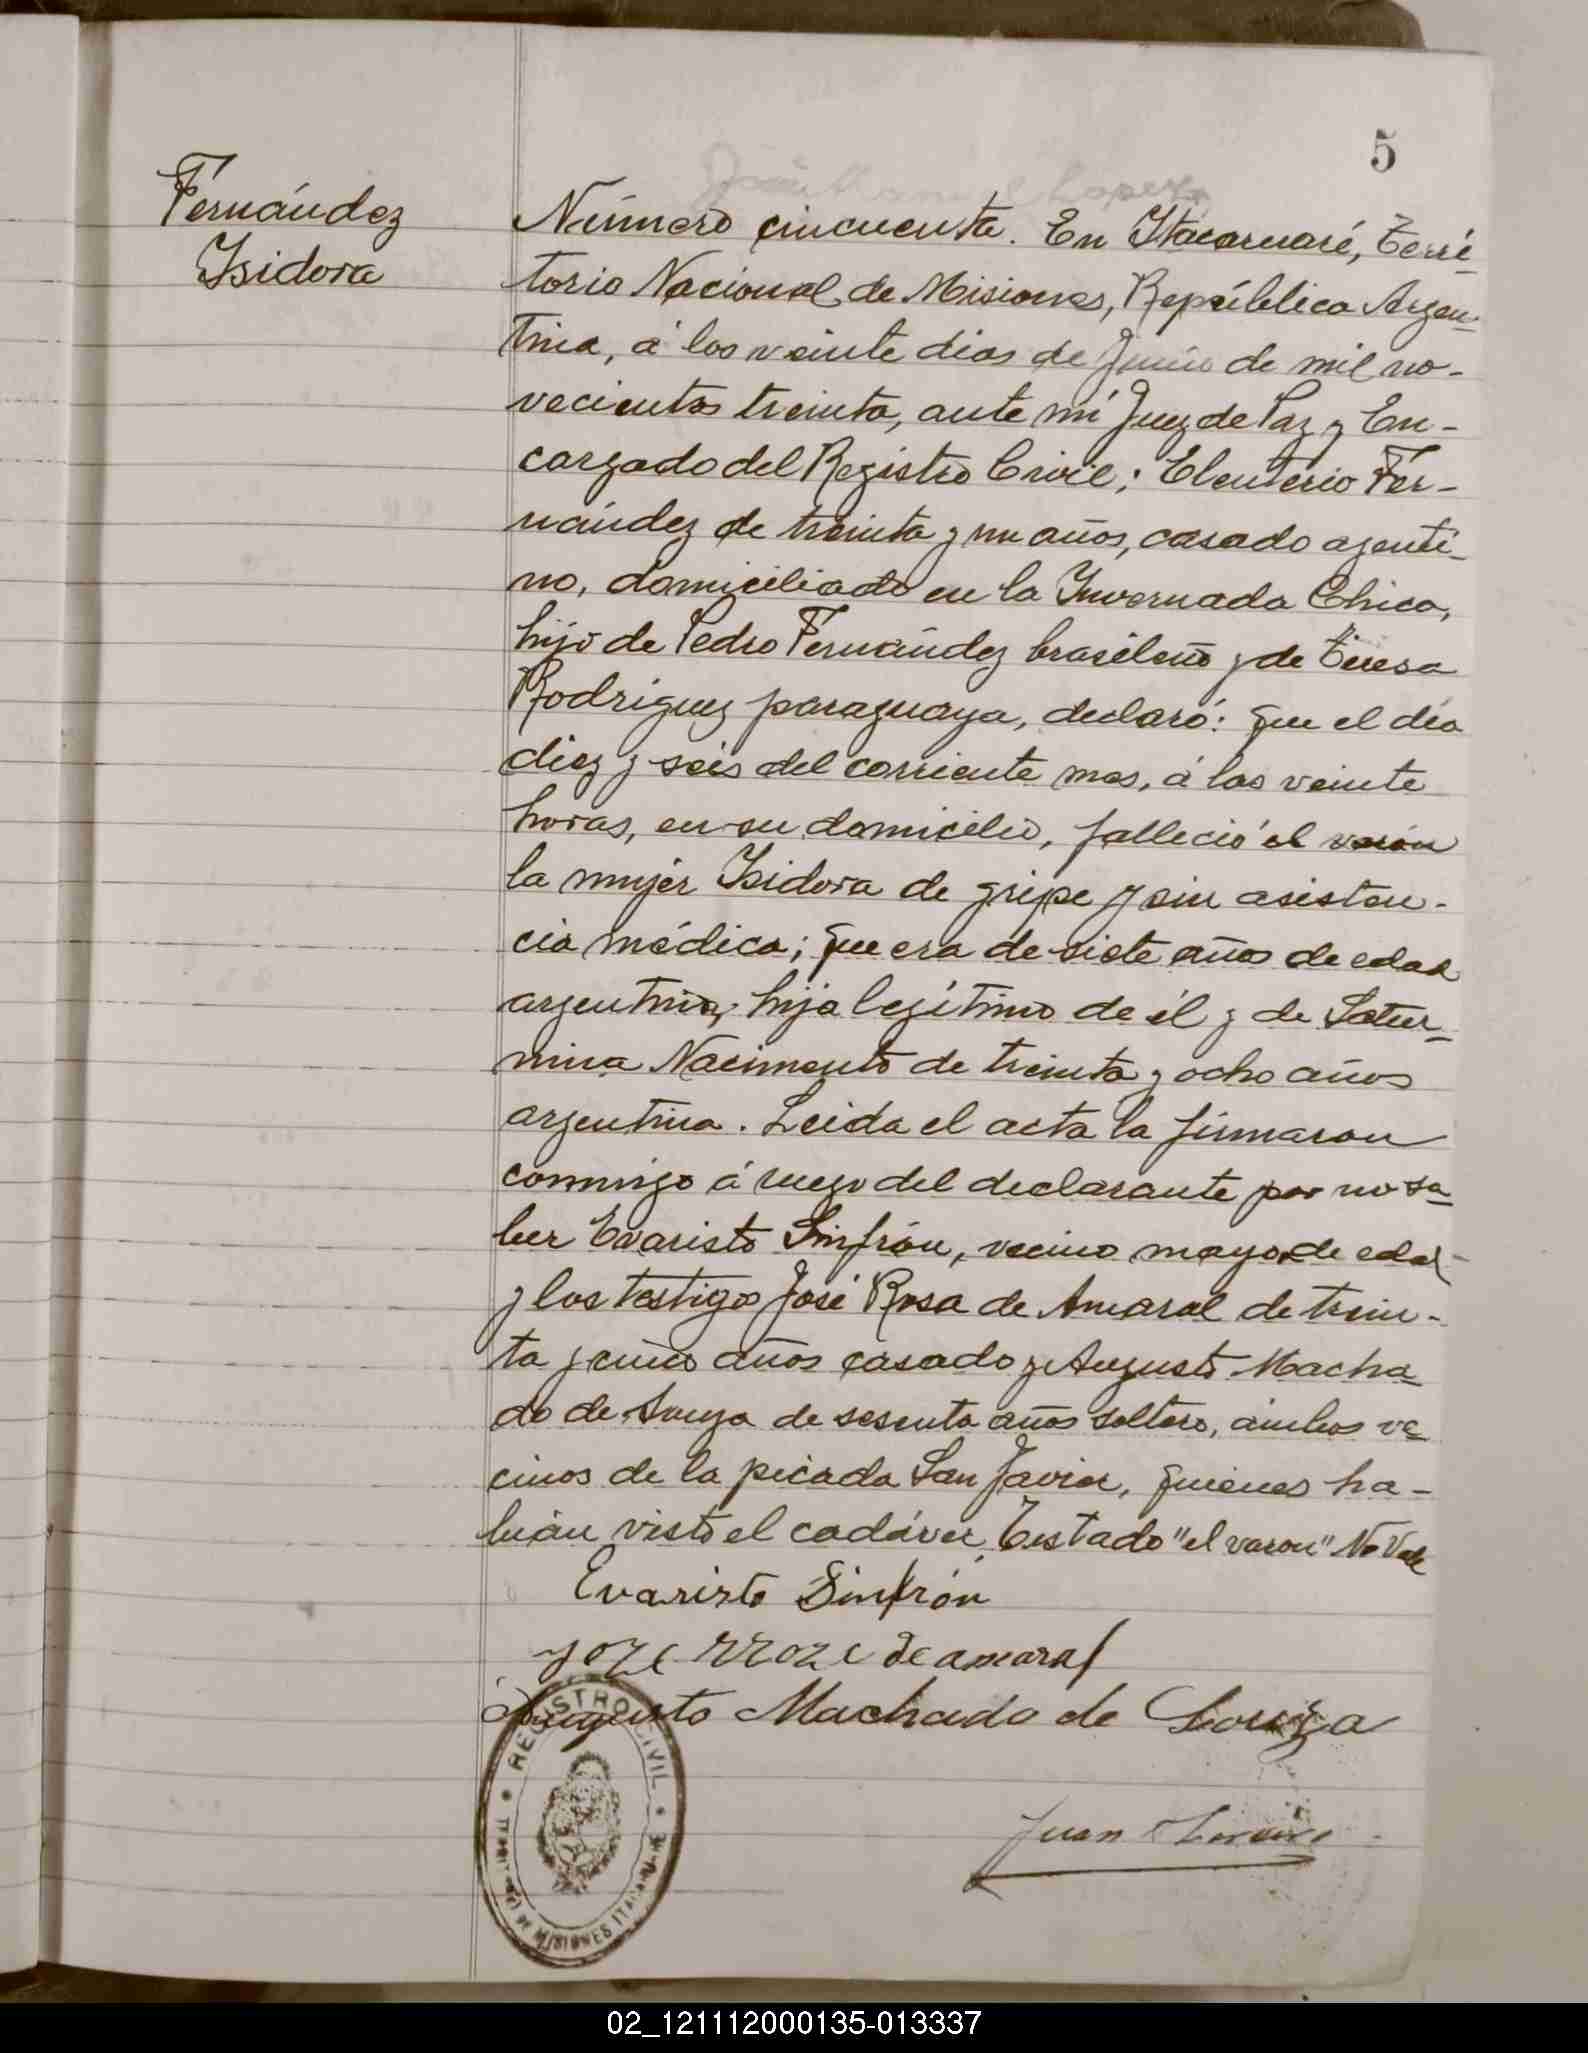 5
Fernández
Isidora
Número cincuenta. En Itacaruaré, Terri-
torio Nacional de Misiones, República Argen-
tina, á los veinte dias de Junio de mil no-
vecientos treinta, ante mí Juez de Paz y En-
cargado del Registro Civil; Eleuterio Fer-
nández de treinta y un años, casado agenti-
no, domiciliado en la Invernada Chica,
hijo de Pedro Fernández brasileño y de Teresa
Rodriguez paraguaya, declaró: que el día
diez y seis del corriente mes, á las veinte
horas, en su domicilio, falleció el varón
la mujer Isidora de gripe y sin asisten-
cia médica; que era de siete años de edad
argentina, hija legítima de él y de Satur-
nina Nacimento de treinta y ocho años
argentina. Leida el acta la firmaron
conmigo á ruego del declarante por no sa-
ber Evaristo Sinfrón, vecino mayor de edad
y los testigos José Rosa de Amaral de trein-
ta y cinco años casado y Augusto Macha-
do de Souza de sesenta años soltero, ámbos ve-
cinos de la picada San Javier, quienes ha-
bían visto el cadáver. Testado "el varon" No Vale
Evaristo Sinfrón
yoze rroze de amaral
Augusto Machado de Souza
REGISTRO CIVIL
MISIONES ITACARUARE
Juan
02_121112000135-013337